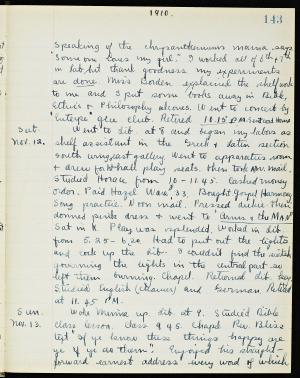 1910.
143
Speaking of the chrysanthemums mama says
"Someone loves my girl." I worked all of 6th & 7th
in lab but thank goodness my experiments
are done. Miss Borden explained the shelf work
to me and I put some books away in Bible,
Ethics & Philosophy alcoves. Went to concert by
"Euterpe" glee club. Retired 10.15 P.M.
Sat. Went to lib at 8 and began my labors as
Nov. 12. shelf assistant in the Greek & Latin section
south wing, east gallery. Went to apparatus room
& drew football play seats, then took mail.
Studied Horace from 10-11.45. Cashed money
order. Paid Hazel Ware .33. Bought Gospel Harmony
Song practice. Noon mail. Pressed duckie then
donned pink dress & went to "Arms & the Man"
Sat in K. Play was splendid. Worked in lib.
from 5.25-6.20. Had to put out the lights
and lock up the lib. I couldn't find the switch
governing the lights in the central part so
left them burning. Chapel. Returned lib key
Studied English (Chaucer) and German. Retired
at 11.45 P.M.
Sun. Woke Minnie up. Lib. at 8. Studied Bible
Nov. 13. class lesson. Class 9.45. Chapel. Rev. Bliss
text "If ye know these things happy are
ye if ye do them". Enjoyed his straight-
forward earnest address every word of which